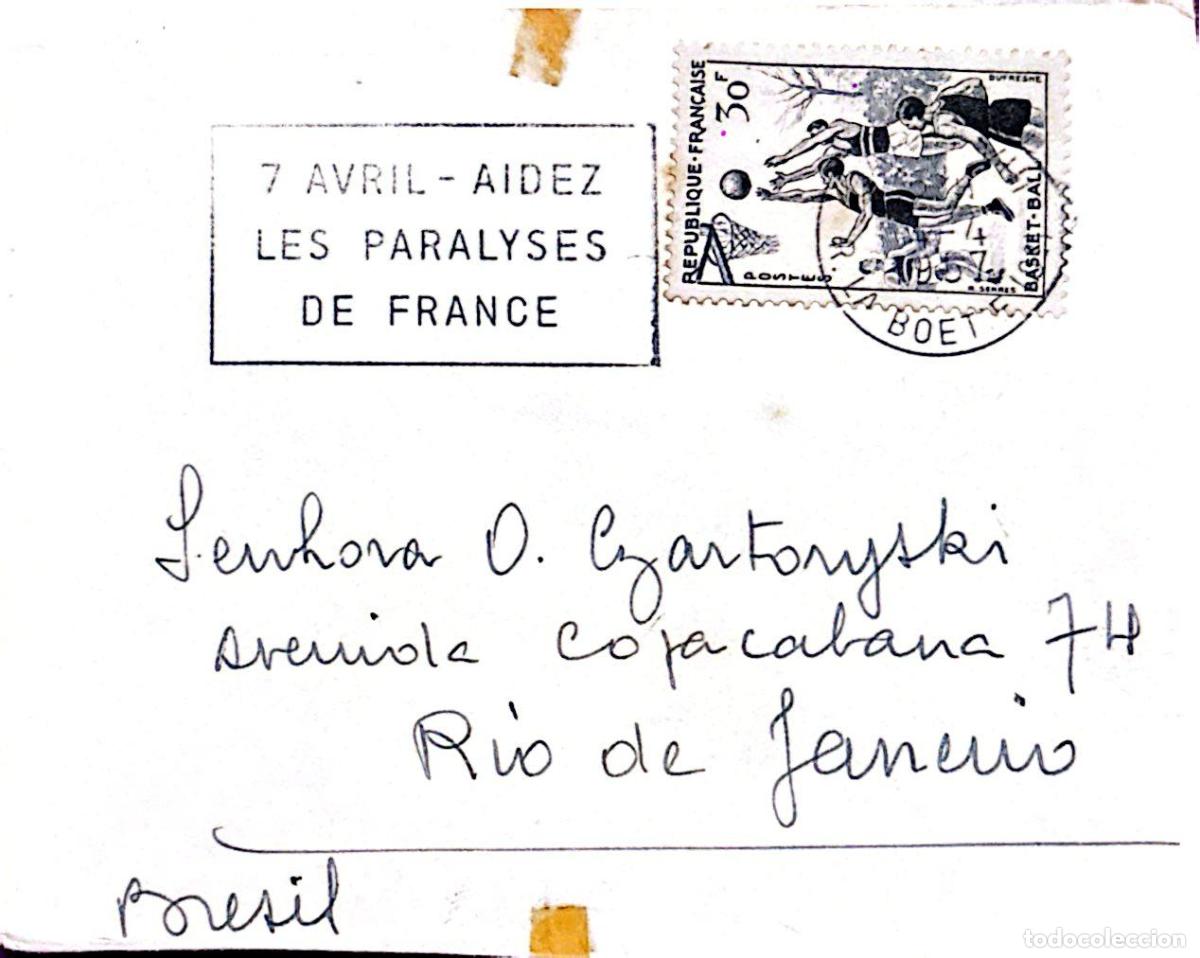 7 AVRIL - AIDEZ
LES PARALYSES
DE FRANCE
REPUBLIQUE-FRANÇAISE
30F
DUFRESNE
POSTES
BASKET-BALL
R. SERRES
1957
LA BOETIE
Senhora O. Czartoryski
avenida Copacabana 74
Rio de Janeiro
Bresil
todocoleccion